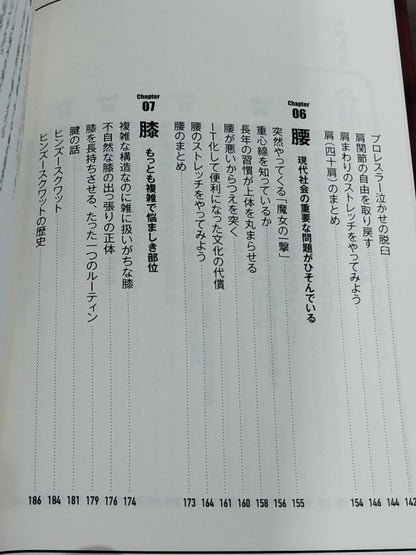 プロレスラー泣かせの脱臼 142
肩関節の自由を取り戻す 144
肩まわりのストレッチをやってみよう 146
肩(四十肩)のまとめ 154
Chapter
06
腰 現代社会の重要な問題がひそんでいる
突然やってくる「魔女の一撃」 155
重心線を知っているか 156
長年の習慣が上体を丸まらせる 158
腰が悪いからつえを突く 160
IT化して便利になった文化の代償 161
腰のストレッチをやってみよう 164
腰のまとめ 173
Chapter
07
膝 もっとも複雑で悩ましき部位
複雑な構造なのに雑に扱いがちな膝 174
不自然な膝の出っ張りの正体 176
膝を長持ちさせる、たった一つのルーティン 179
腱の話 181
ヒンズースクワット 184
ヒンズースクワットの歴史 186